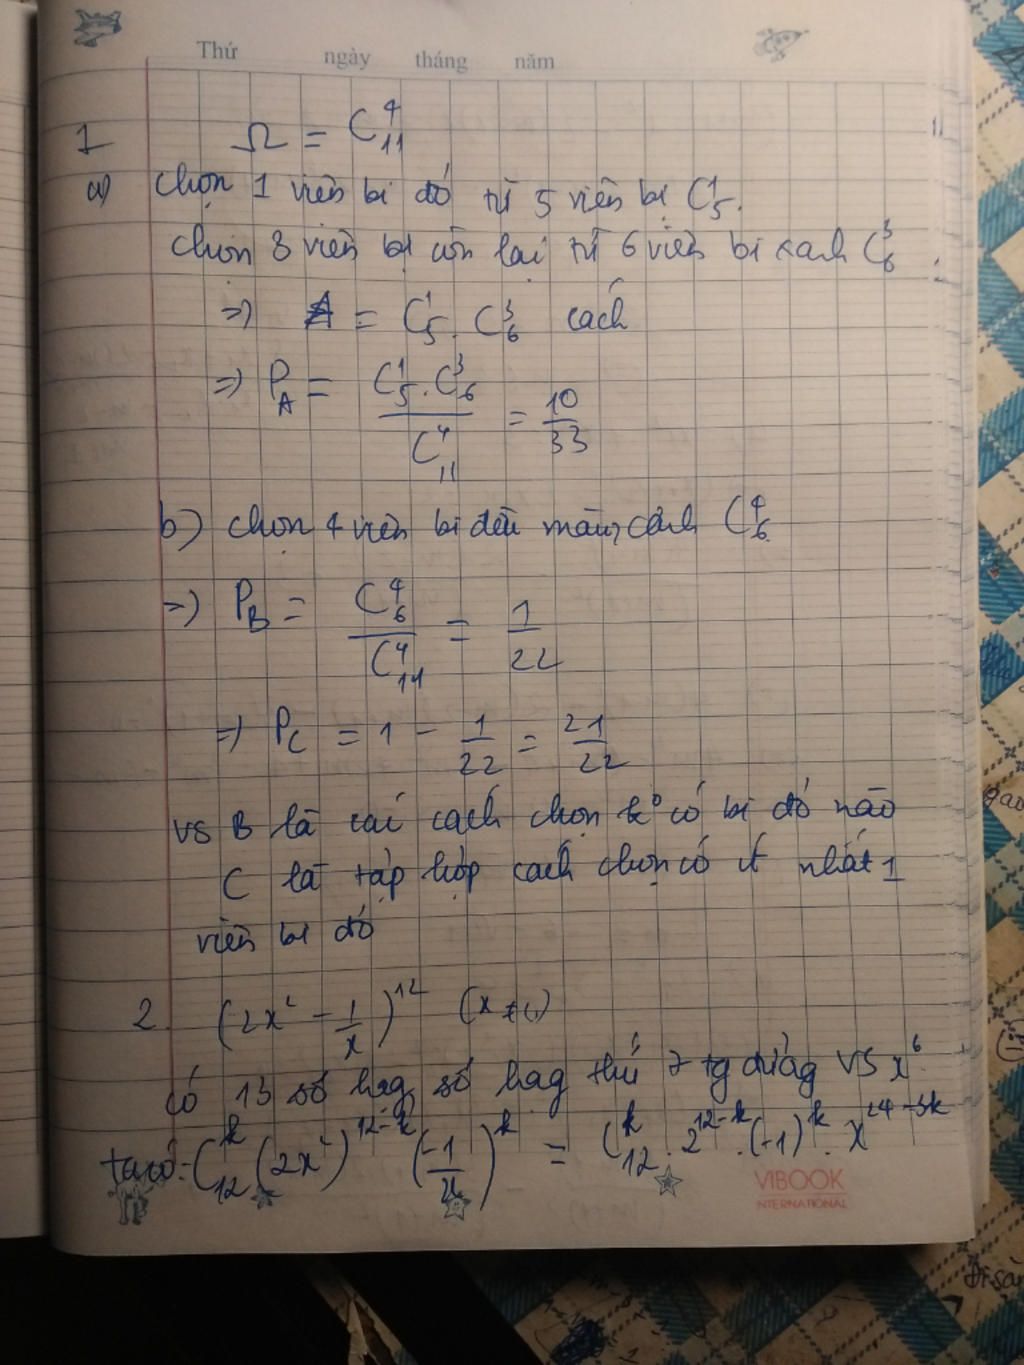 Thứ ngày tháng năm
1 Ω = C⁴₁₁
a) chọn 1 viên bi đỏ từ 5 viên bi C¹₅.
chọn 3 viên bi còn lại từ 6 viên bi xanh C³₆
=> A = C¹₅ . C³₆ cách
=> P_A = (C¹₅ . C³₆)/(C⁴₁₁) = 10/33
b) chọn 4 viên bi đều màu xanh C⁴₆
=> P_B = C⁴₆/C⁴₁₁ = 1/22
=> P_C = 1 - 1/22 = 21/22
vs B là cái cách chọn k° có bi đỏ nào
C là tập hợp cách chọn có ít nhất 1
viên bi đỏ
2. (2x² - 1/x)¹² (x ≠ 0)
có 13 số hag, số hag thứ 7 tg đương vs x⁶
ta có: C^k₁₂ (2x²)^(12-k) (-1/x)^k = C^k₁₂ . 2^(12-k) . (-1)^k . x^(24-3k)
VIBOOK
INTERNATIONAL